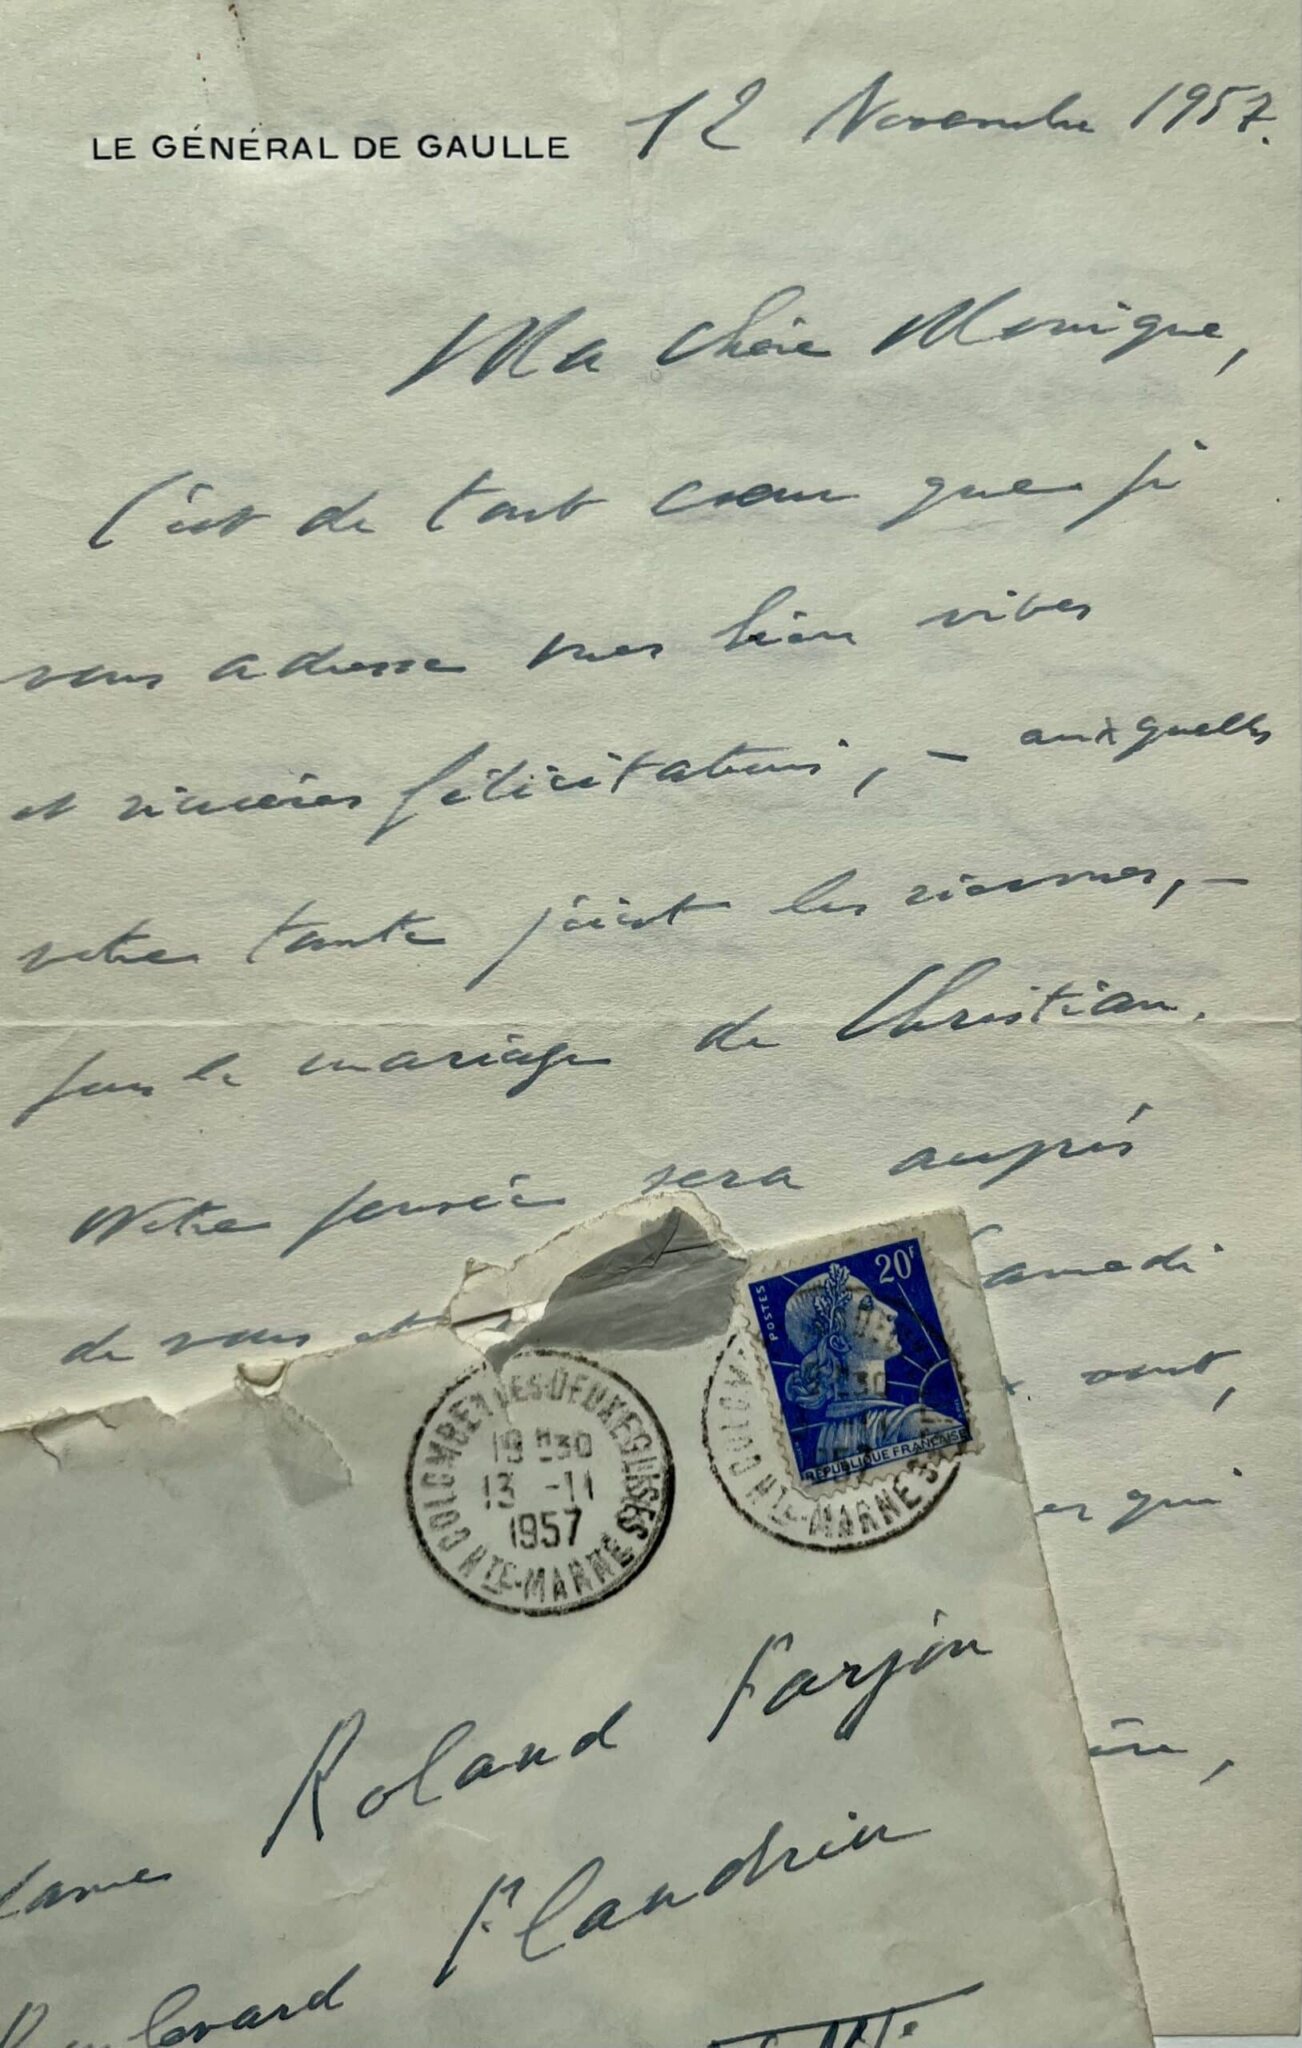 LE GÉNÉRAL DE GAULLE
12 Novembre 1957.
Ma chère Monique,
C'est de tout cœur que je
vous adresse mes bien vives
et sincères félicitations, – auxquelles
votre tante joint les siennes, –
pour le mariage de Christian.
Notre pensée sera auprès
de vous
Samedi
sont,
qui
20F
POSTES
REPUBLIQUE FRANÇAISE
COLOMBEY-LES-DEUX-EGLISES
18 H30
13 -11
1957
HTE-MARNE
Madame Roland Farjon
Boulevard Flandrin